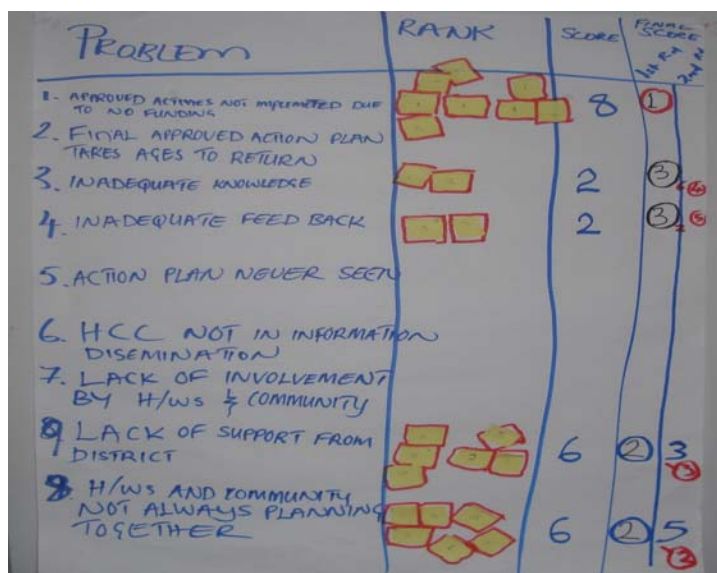 PROBLEM RANK SCORE FINAL SCORE
1st Rd 2nd Rd
1. APPROVED ACTIVIES NOT IMPLEMETED DUE
TO NO FUNDING 8 1
2. FINAL APPROVED ACTION PLAN
TAKES AGES TO RETURN
3. INADEQUATE KNOWLEDGE 2 3
4. INADEQUATE FEED BACK 2 3
5. ACTION PLAN NEVER SEEN
6. HCC NOT IN INFORMATION
DISEMINATION
7. LACK OF INVOLVEMENT
BY H/WS & COMMUNITY
9 LACK OF SUPPORT FROM
DISTRICT 6 2 3
8. H/WS AND COMMUNITY
NOT ALWAYS PLANNING
TOGETHER 6 2 5
2